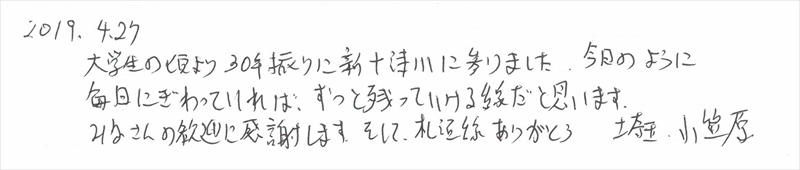 2019. 4.27
大学生の頃より30年振りに新十津川に参りました. 今日のように
毎日にぎわっていれば、ずっと残っていける線だと思います.
みなさんの歓迎に感謝します. そして、札沼線ありがとう 埼玉. 小笠原